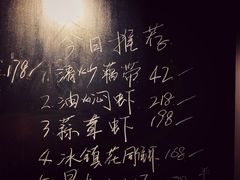 今日推荐
178-
1.清炒藕带 42-
2.油焖虾 218-
3.蒜茸虾 198-
4.冰镇花雕 168-